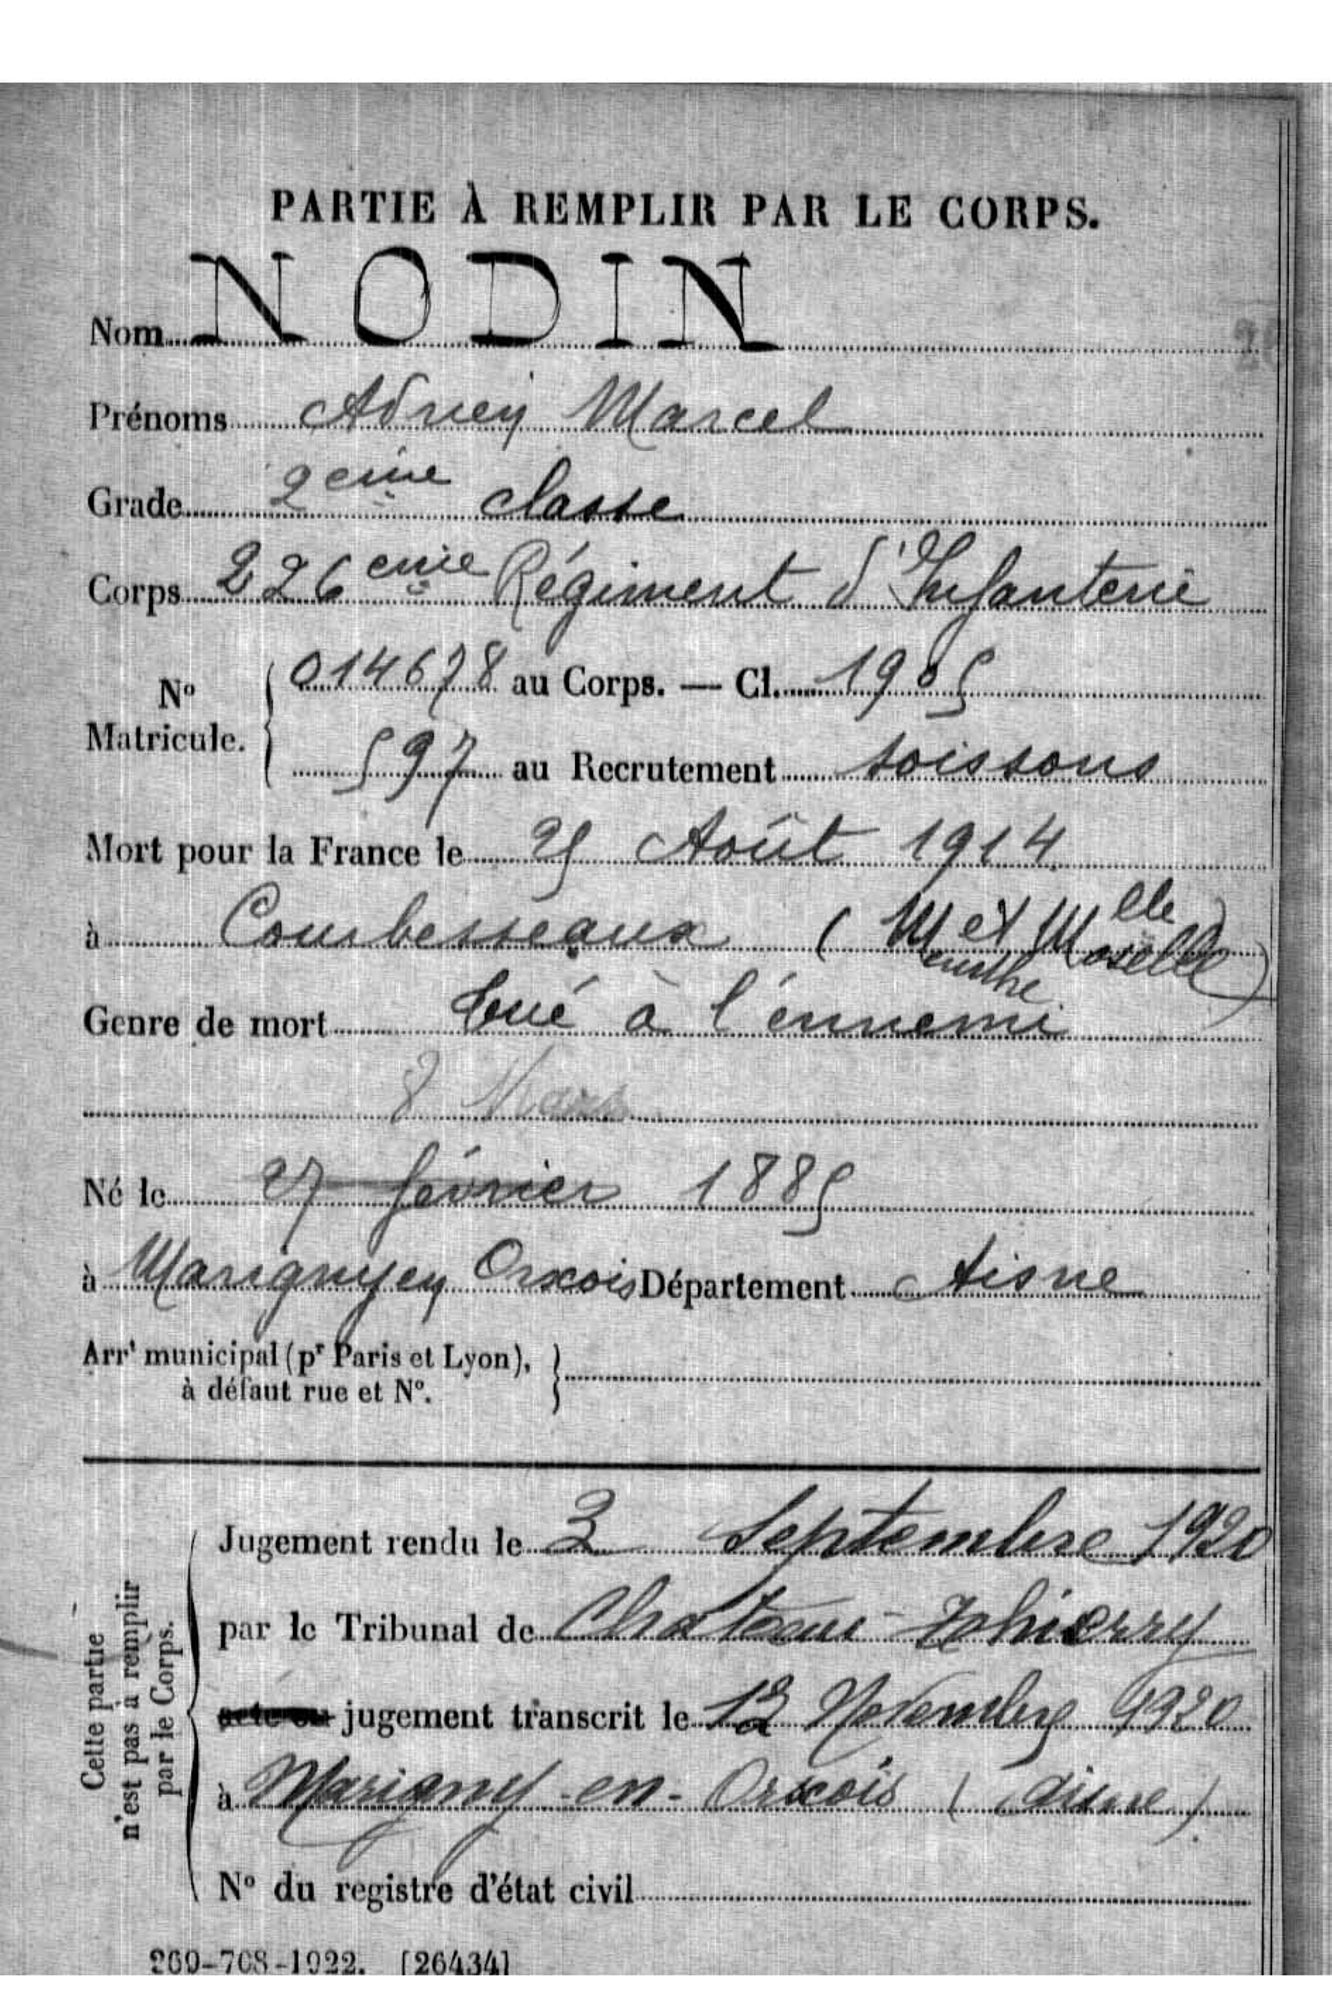 PARTIE À REMPLIR PAR LE CORPS.
Nom NODIN
Prénoms Adrien Marcel
Grade 2eme classe
Corps 226eme Régiment d'Infanterie
N° Matricule. 014678 au Corps. — Cl. 1905
597 au Recrutement Soissons
Mort pour la France le 25 Août 1914
à Courbesseaux (M et Mlle)
Meurthe Moselle)
Genre de mort tué à l'ennemi
8 Mars
Né le 27 février 1885
à Marigny en Orxois Département Aisne
Arrt municipal (pr Paris et Lyon),
à défaut rue et N°.
Cette partie
n'est pas à remplir
par le Corps.
Jugement rendu le 3 Septembre 1920
par le Tribunal de Chateau-Thierry
acte ou jugement transcrit le 12 Novembre 1920
à Marigny-en-Orxois (Aisne)
N° du registre d'état civil
269-708-1922. [26434]